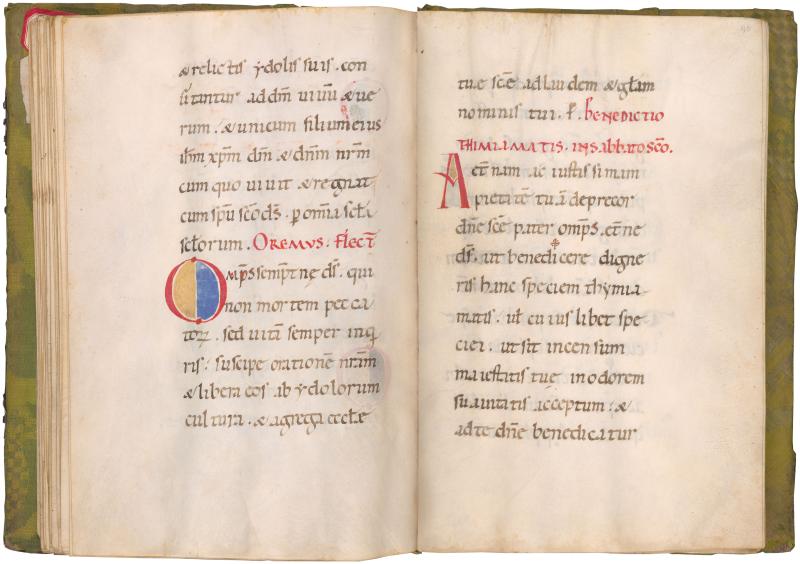 & relictis ydolis suis. con
uertantur ad dm̄ uiuū & ue
rum. & unicum filium eius
ihm̄ xpm̄ dm̄ & dn̄m nr̄m
cum quo uiuit & regnat
cum spū sc̄o ds̄. p om̄ia scl̄a
scl̄orum. OREMUS. Flect̄
Omps̄ sempit ne ds̄. qui
non mortem pecca
torꝝ. sed uitā semper inq̄
ris. suscipe orationē nr̄am
& libera eos ab ydolorum
cultura. & agrega eccl̄e
tue sc̄e ad laudem & gl̄am
nominis tui. P̄. BENEDICTIO
THIMIAMATIS. IN SABBATO SC̄O.
Aet̄nam ac iustissimam
pietatē tuā deprecor
dn̄e sc̄e pater omps̄. et̄ne
ds̄. ut bene✠dicere digne
ris hanc speciem thymia
matis. ul̄ cuius libet spe
ciei. ut sit incensum
maiestatis tue in odorem
suauitatis acceptum. &
ad te dn̄e benedicatur